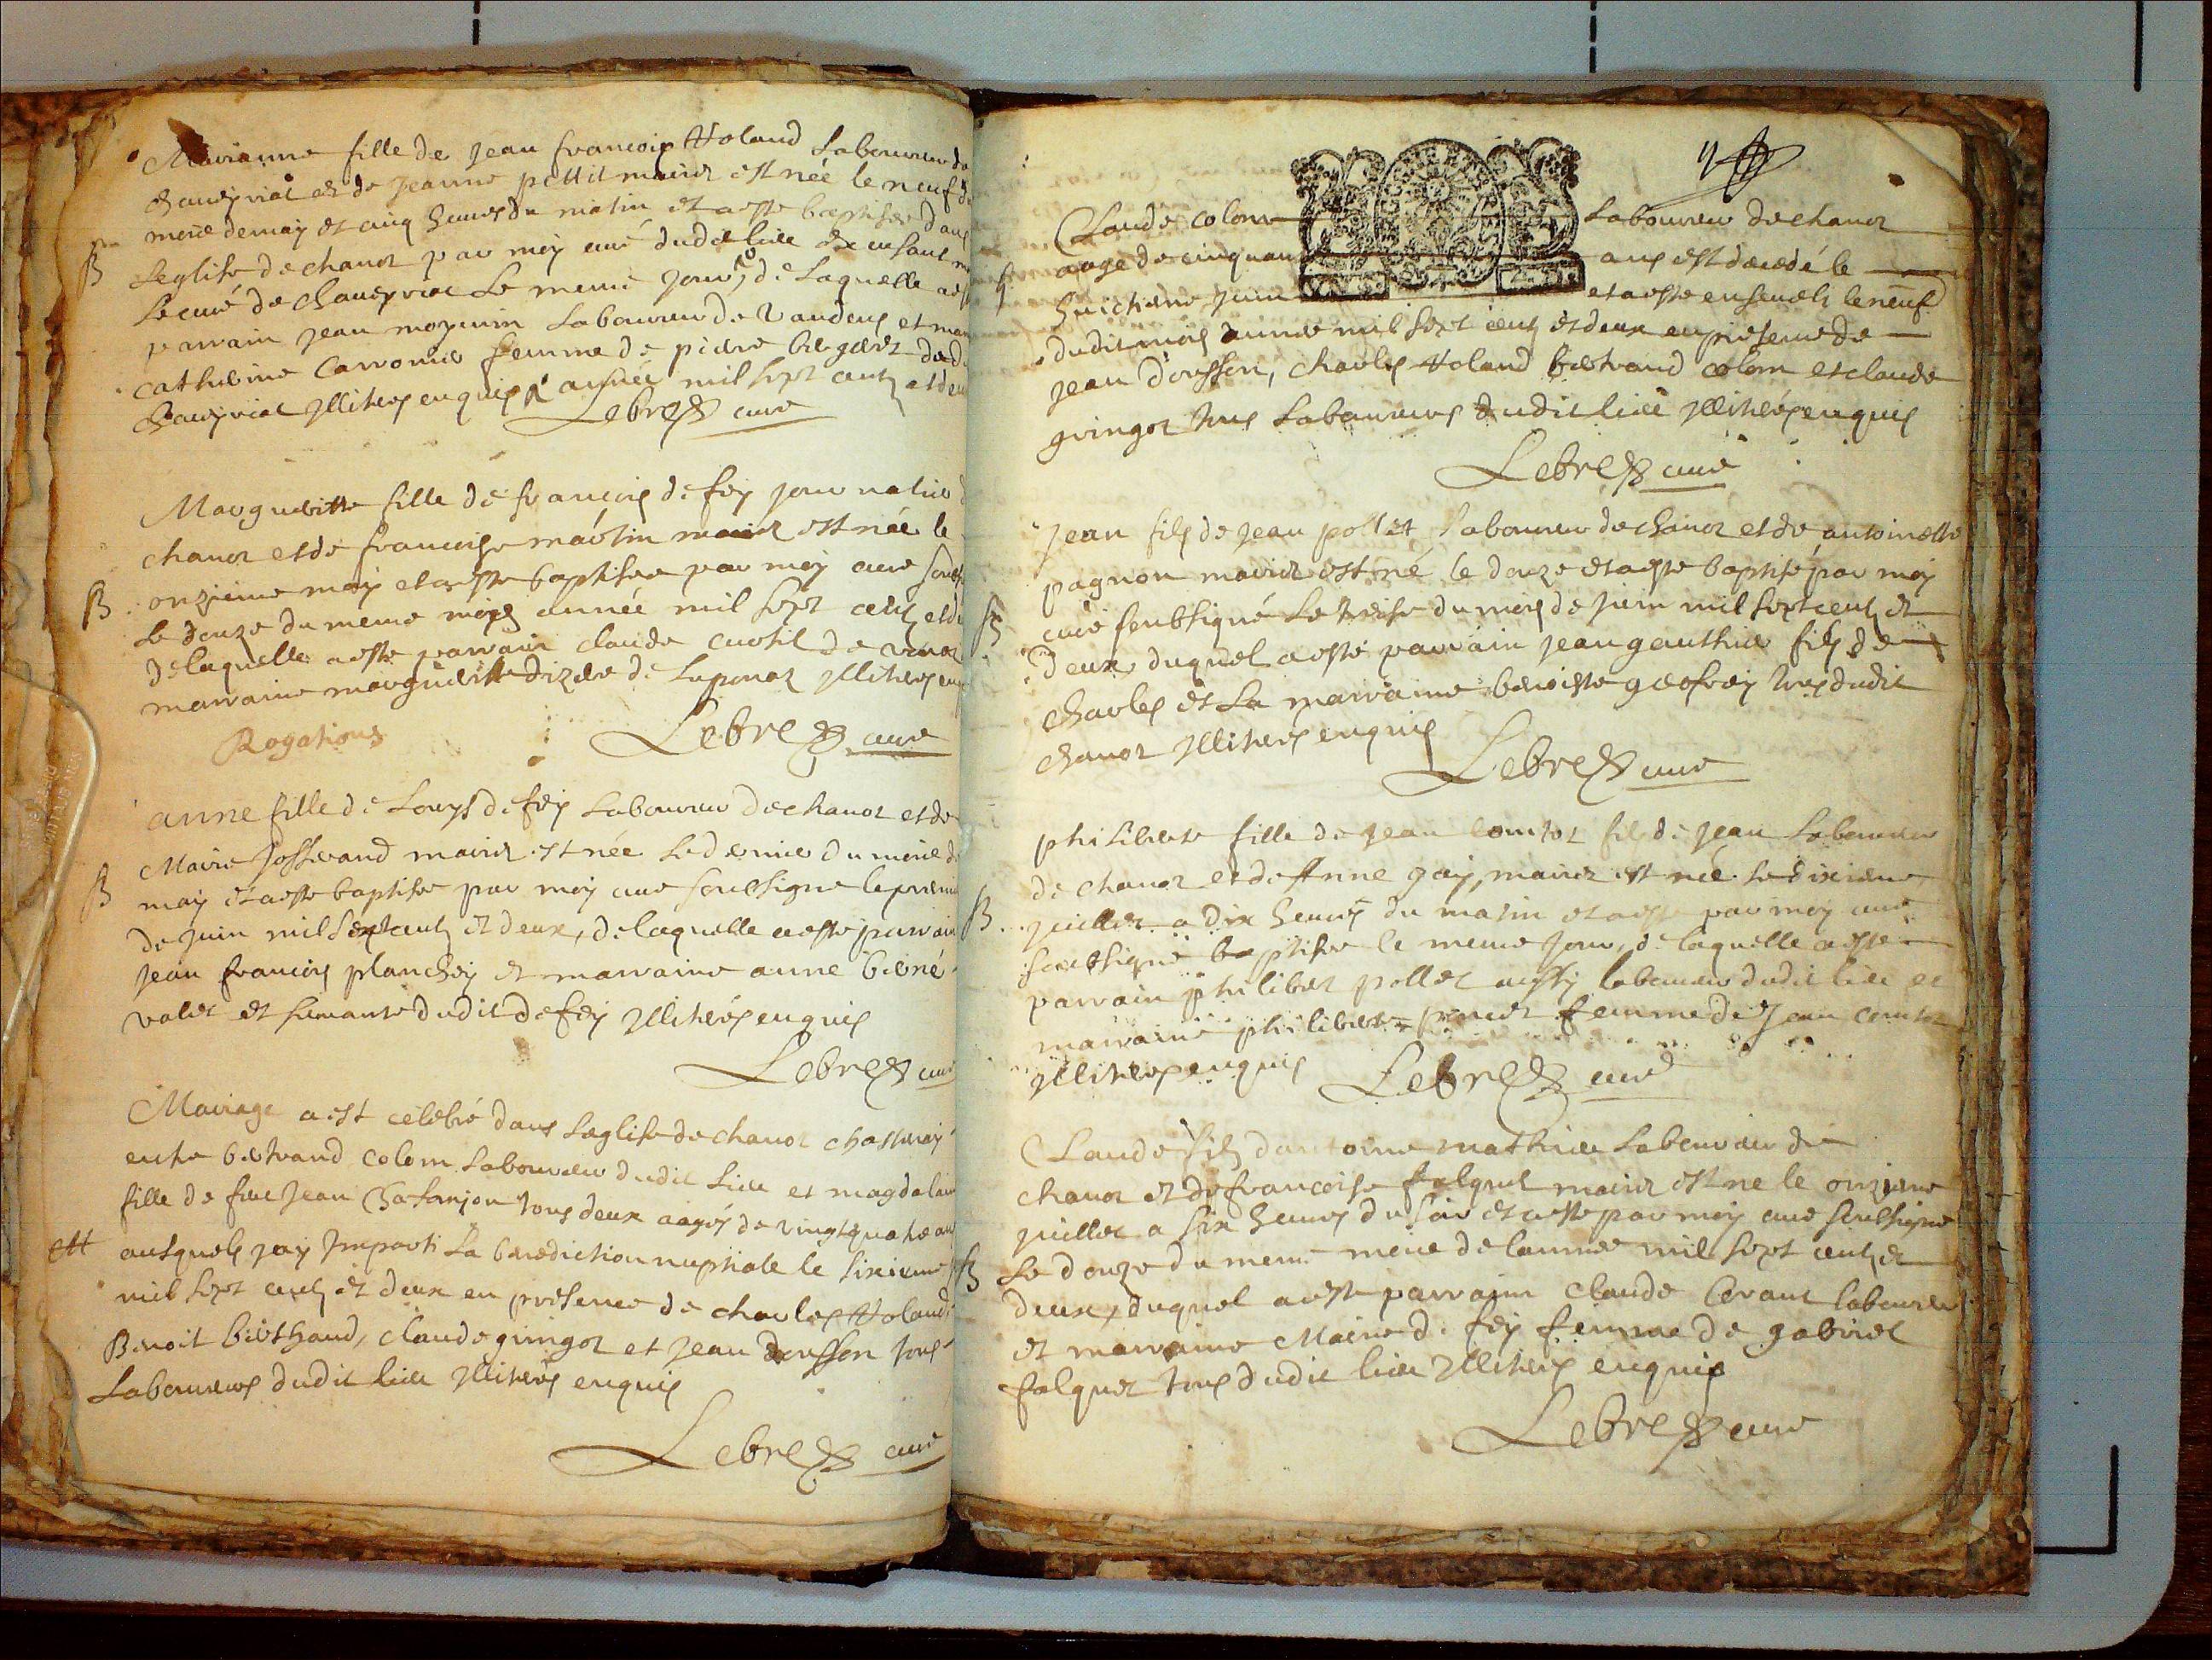 Marianne fille de Jean francois Holand Laboureur de
Chaveyriat et de Jeanne pettit mariez est née le neuf du
mois de may et cinq heures du matin et a esté baptisée dans
B
Leglise de chanoz par moy curé dudit lieu en
Le curé de Chaveyriat Le meme jour, de Laquelle a esté
parrain Jean moyrin Laboureur de Vandens et
catherine Carronier femme de piere dud
Chaveyriat Illiterez enquis année mil sept centz et deux
Lebrez curé
Marguerite fille de francois de fey journalier
chanoz et de francoise martin mariez est née le
onzieme may et a esté baptisée par moy curé soub
B
Le douze du meme mois année mil sept centz et
de laquelle a esté parrain claude curtil de vonas
marraine marguerite dizere de Luponaz Illiterez
Rogations
Lebrez curé
anne fille de Louys de fey Laboureur de chanoz et de
Marie Josserand mariez est née Le dernier du mois de
B
may et a esté baptisée par moy curé soubsigné le premier
de juin mil sept centz et deux, de laquelle a esté parrain
Jean francois planchey et marraine anne
valet et servante dudit de fey Illiterez enquis
Lebrez curé
Mariage a est celebré dans Leglise de chanoz chastenay
entre bertrand colom Laboureur dudit Lieu et magdelaine
fille de feu Jean Chatanjon tous deux aagés de vingt quatre ans
M
ausquels jay Imparti La benediction nuptiale le sixieme
mil sept centz et deux en presence de charles Holand
Benoit berthaud, claude gringoz et Jean dousson tous
Laboureurs dudit lieu Illiterez enquis
Lebrez curé
Claude colom Laboureur de chanoz
aage de cinquante ans est decedé le
huictieme Juin et a esté ensevely le neuf
dudit mois année mil sept centz et deux en presence de
Jean dousson, charles Holand bertrand colom et claude
gringoz tous Laboureurs dudit lieu Illiterez enquis
Lebrez curé
Jean filz de Jean pollet Laboureur de chanoz et de antoinette
pagnon mariez est né le douze et a esté baptisé par moy
B
curé soubsigné Le treise du mois de juin mil sept centz et
deux duquel a esté parrain Jean gauthier filz de
charles et La marraine benoiste geofrey tous dudit
chanoz Illiterez enquis
Lebrez curé
philiberte fille de Jean comtoz filz de Jean Laboureur
de chanoz et de Anne gay, mariez est née Le dixieme
B
juillet a dix heures du matin et a esté par moy curé
soubsigné baptisée le meme Jour, de laquelle a esté
parrain philibert pollet aussy laboureur dudit lieu et
marraine philiberte femme de Jean comtoz
Illiterez enquis
Lebrez curé
Claude filz dantoine mathieu Laboureur de
chanoz et de francoise falquet mariez est ne le onzieme
juillet a six heures du soir et a esté par moy curé soubsigné
B
Le douze du meme mois de lannée mil sept centz et
deux, duquel a esté parrain claude laboureur
et marraine Marie de fey femme de gabriel
falquet tous dudit lieu Illiterez enquis
Lebrez curé